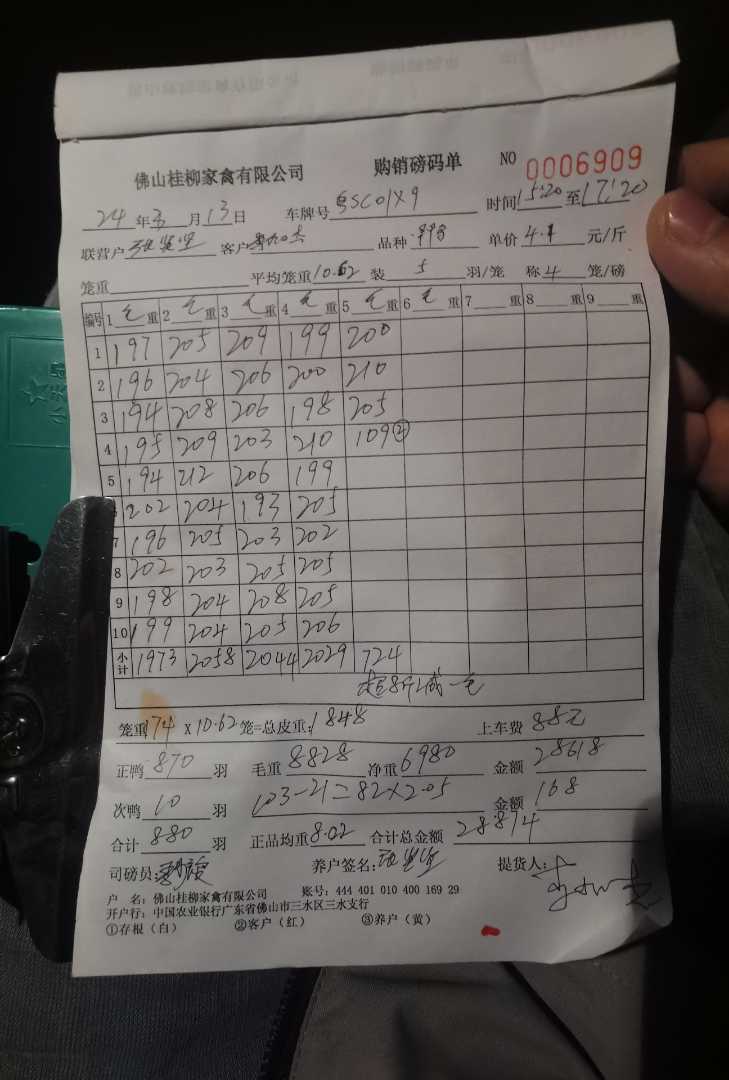 佛山桂柳家禽有限公司 购销磅码单 NO 0006909
24年3月13日 车牌号 粤SC01X9 时间15:20至17:20
联营户 客户 品种 单价4.1元/斤
笼重 平均笼重10.62装 5 羽/笼 称4笼/磅
编号 1毛重 2毛重 3毛重 4毛重 5毛重 6毛重 7重 8重 9重
1 197 205 209 199 200
2 196 204 206 200 210
3 194 208 206 198 205
4 195 209 203 210 109②
5 194 212 206 199
202 204 193 205
7 196 205 203 202
8 202 203 205 205
9 198 204 208 205
10 199 204 205 206
小计 1973 2058 2044 2029 724
超8斤减一毛
笼重174x10.62笼=总皮重:1848 上车费 88元
正鸭 870 羽 毛重 8828 净重 6980 金额 28618
次鸭 10 羽 103-21=82×2.05 金额 168
合计 880 羽 正品均重8.02 合计总金额 28874
司磅员: 养户签名: 提货人:
户 名: 佛山桂柳家禽有限公司 账号: 444 401 010 400 169 29
开户行: 中国农业银行广东省佛山市三水区三水支行
①存根(白) ②客户(红) ③养户(黄)